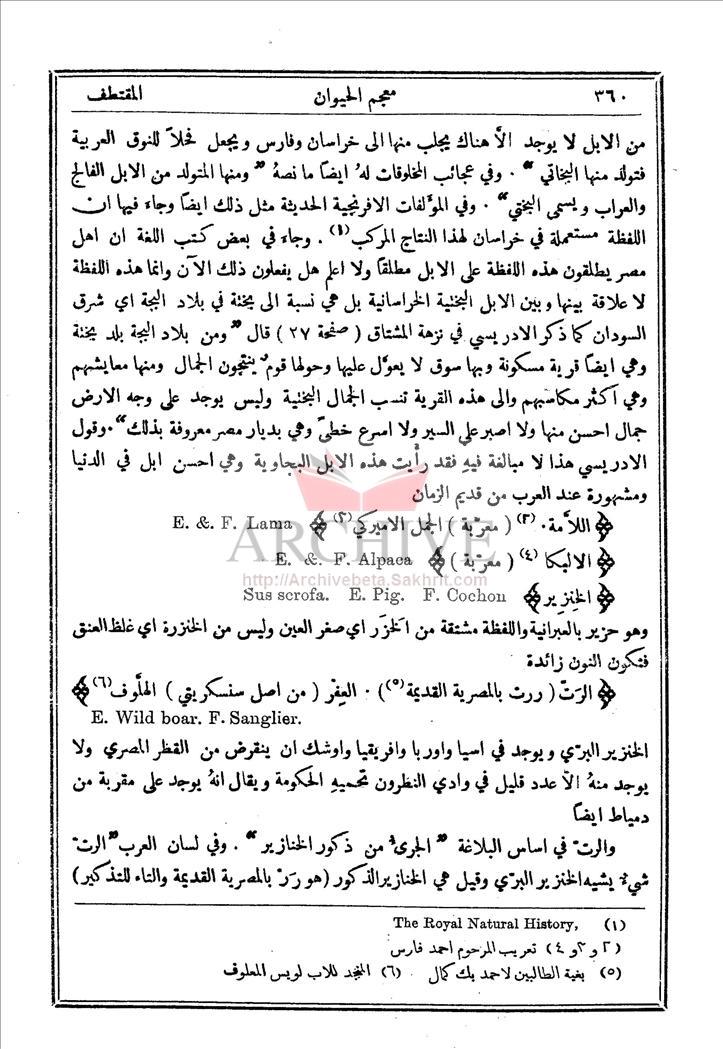 ٣٦٠ معجم الحيوان المقتطف
من الابل لا يوجد الاَّ هناك يجلب منها الى خراسان وفارس ويجعل فحلاً للنوق العربية
فتولد منها البخاتي" . وفي عجائب المخلوقات لهُ ايضاً ما نصهُ "ومنها المتولد من الابل الفالج
والعراب ويسمى البختي" . وفي المؤلفات الافرنجية الحديثة مثل ذلك ايضاً وجاءَ فيها ان
اللفظة مستعملة في خراسان لهذا النتاج المركب(١) . وجاءَ في بعض كتب اللغة ان اهل
مصر يطلقون هذه اللفظة على الابل مطلقاً ولا اعلم هل يفعلون ذلك الآن وانما هذه اللفظة
لا علاقة بينها وبين الابل البختية الخراسانية بل هي نسبة الى بختة في بلاد البجة اي شرق
السودان كما ذكر الادريسي في نزهة المشتاق ( صفحة ٢٧ ) قال "ومن بلاد البجة بلد بختة
وهي ايضاً قرية مسكونة وبها سوق لا يعوَّل عليها وحولها قومٌ ينتجون الجمال ومنها معايشهم
وهي اكثر مكاسبهم والى هذه القرية تنسب الجمال البختية وليس يوجد على وجه الارض
جمال احسن منها ولا اصبر على السير ولا اسرع خطىً وهي بديار مصر معروفة بذلك" . وقول
الادريسي هذا لا مبالغة فيهِ فقد رأيت هذه الابل البجاوية وهي احسن ابل في الدنيا
ومشهورة عند العرب من قديم الزمان
﴿ اللاَّمة . (٢) ( معرّبة ) الجمل الاميركي(٣) ﴾ E. & F. Lama
﴿ الالبكا (٤) ( معرّبة ) ﴾ E. & F. Alpaca
﴿ الخنزير ﴾ Sus scrofa. E. Pig. F. Cochon
وهو حزير بالعبرانية واللفظة مشتقة من الخَزَر اي صغر العين وليس من الخنزرة اي غلظ العنق
فتكون النون زائدة
﴿ الرَتّ ( ررت بالمصرية القديمة(٥) ) . العِفْر ( من اصل سنسكريتي ) الهلَّوف(٦) ﴾
E. Wild boar. F. Sanglier.
الخنزير البرّي ويوجد في اسيا واوربا وافريقيا واوشك ان ينقرض من القطر المصري ولا
يوجد منهُ الاَّ عدد قليل في وادي النطرون تحميهِ الحكومة ويقال انهُ يوجد على مقربة من
دمياط ايضاً
والرتّ في اساس البلاغة "الجريء من ذكور الخنازير" . وفي لسان العرب "الرتّ
شيءٌ يشبه الخنزير البرّي وقيل هي الخنازير الذكور (هو رَرْ بالمصرية القديمة والتاء للتذكير)
(١) The Royal Natural History,
(٢ و ٣ و ٤) تعريب المرحوم احمد فارس
(٥) بغية الطالبين لاحمد بك كمال (٦) المنجد للاب لويس المعلوف
ARCHIVE
http://Archivebeta.Sakhrit.com